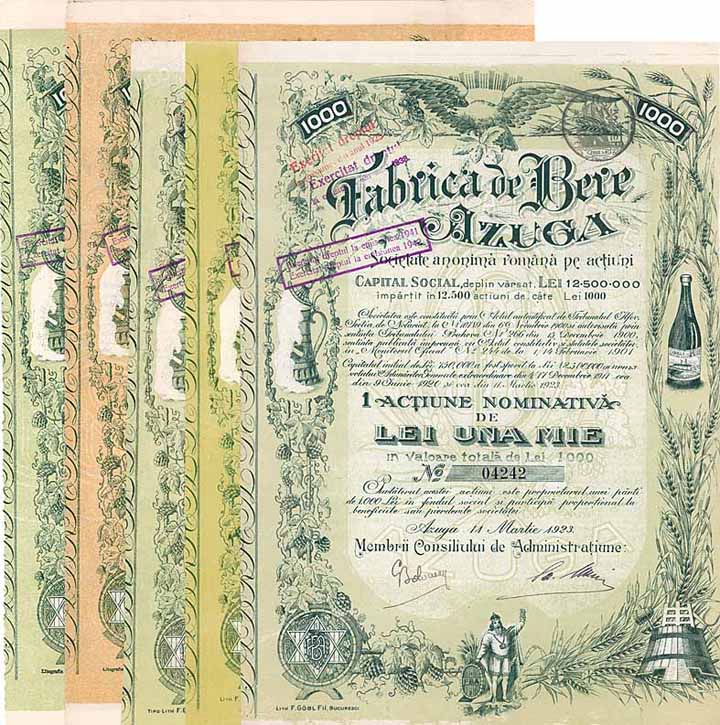 1000
1000
Exercitat dreptul
Exercitat dreptul
Fabrica de Bere
AZUGA
Societate anonimă română pe acțiuni
CAPITAL SOCIAL, deplin vărsat, LEI 12·500·000
împărțit în 12.500 acțiuni de câte Lei 1000
Exercitat dreptul la emisiunea 1941
Exercitat dreptul la emisiunea 1942
Societatea este constituită prin Actul autentificat de Tribunalul Ilfov
Secția de Notariat, la No. 6 Noembrie 1900 și autorizată prin
sentința Tribunalului Prahova No. 266 din Decembrie 1900,
sentință publicată împreună cu Actul constitutiv și statutele societăței
în „Monitorul Oficial" No. 244 de la 1/14 Februarie 1901
Capitalul inițial de Lei 750,000 a fost sporit la Lei 12.500.000 în urma
votului Adunărilor Generale extraordinare din 4/17 Decembrie 1914, cea
din 9 Iunie 1920 și cea din 11 Martie 1923.
1 ACȚIUNE NOMINATIVĂ
DE
LEI UNA MIE
în valoare totală de Lei 1.000
No 04242
Purtătorul acestei acțiuni este proprietarul unei părți
de 1.000 Lei în fondul social și participă proporțional la
beneficiile sau pierderile societății.
Azuga 11 Martie 1923.
Membrii Consiliului de Administrațiune:
LITH. F. GÖBL FII, BUCUREȘCI
TIPO-LITH F.
LITH F.
Litografia
Litografia
1000